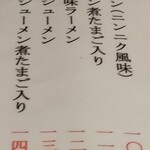 ン(ニンニク風味)
ン煮たまご入り
味ラーメン
シューメン
シューメン煮たまご入り
一〇
一一
一二
一三
一四